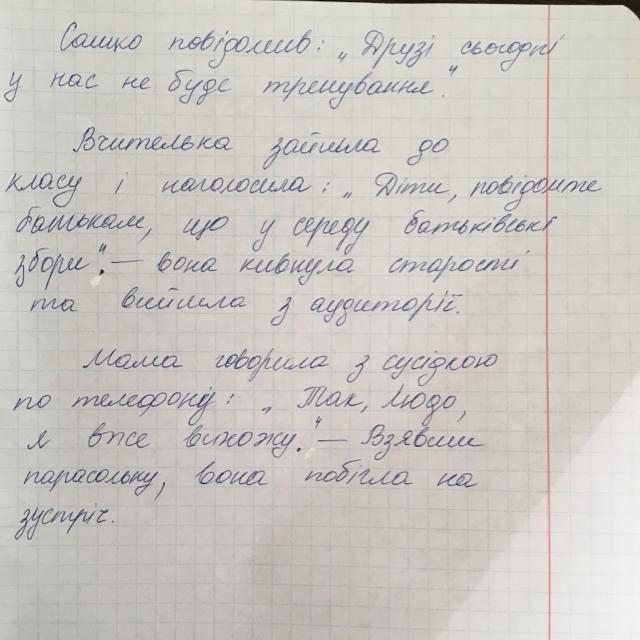 Сашко повідомив: „Друзі сьогодні
у нас не буде тренування".
Вчителька зайшла до
класу і наголосила: „Діти, повідомте
батькам, що у середу батьківські
збори". — вона кивнула старості
та вийшла з аудиторії.
Мама говорила з сусідкою
по телефону: „Так, Людо,
я вже виходжу." — Взявши
парасольку, вона побігла на
зустріч.